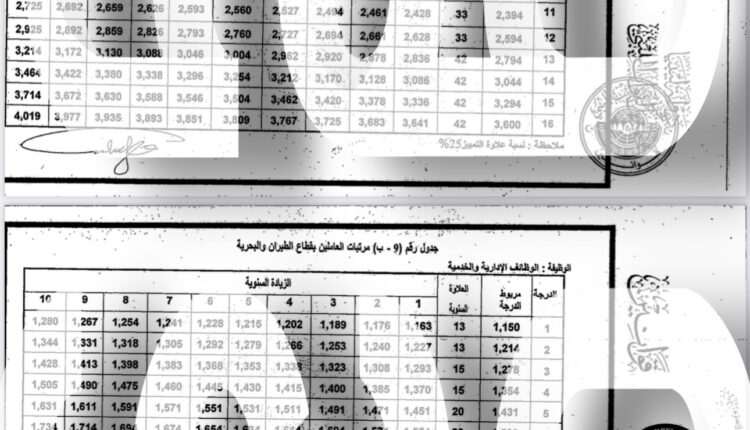 11 2,394 33 2,428 2,461 2,494 2,527 2,560 2,593 2,626 2,659 2,692 2,725
12 2,594 33 2,628 2,661 2,694 2,727 2,760 2,793 2,826 2,859 2,892 2,925
13 2,794 42 2,836 2,878 2,920 2,962 3,004 3,046 3,088 3,130 3,172 3,214
14 3,044 42 3,086 3,128 3,170 3,212 3,254 3,296 3,338 3,380 3,422 3,464
15 3,294 42 3,336 3,378 3,420 3,462 3,504 3,546 3,588 3,630 3,672 3,714
16 3,600 42 3,641 3,683 3,725 3,767 3,809 3,851 3,893 3,935 3,977 4,019
ملاحظة : نسبة علاوة التمييز25%
جدول رقم (9 - ب) مرتبات العاملين بقطاع الطيران والبحرية
الوظيفة : الوظائف الإدارية والخدمية
الدرجة مربوط الدرجة العلاوة السنوية الزيادة السنوية
1 2 3 4 5 6 7 8 9 10
1 1,150 13 1,163 1,176 1,189 1,202 1,215 1,228 1,241 1,254 1,267 1,280
2 1,214 13 1,227 1,240 1,253 1,266 1,279 1,292 1,305 1,318 1,331 1,344
3 1,278 15 1,293 1,308 1,323 1,338 1,353 1,368 1,383 1,398 1,413 1,428
4 1,354 15 1,370 1,385 1,400 1,415 1,430 1,445 1,460 1,475 1,490 1,505
5 1,431 20 1,451 1,471 1,491 1,511 1,531 1,551 1,571 1,591 1,611 1,631